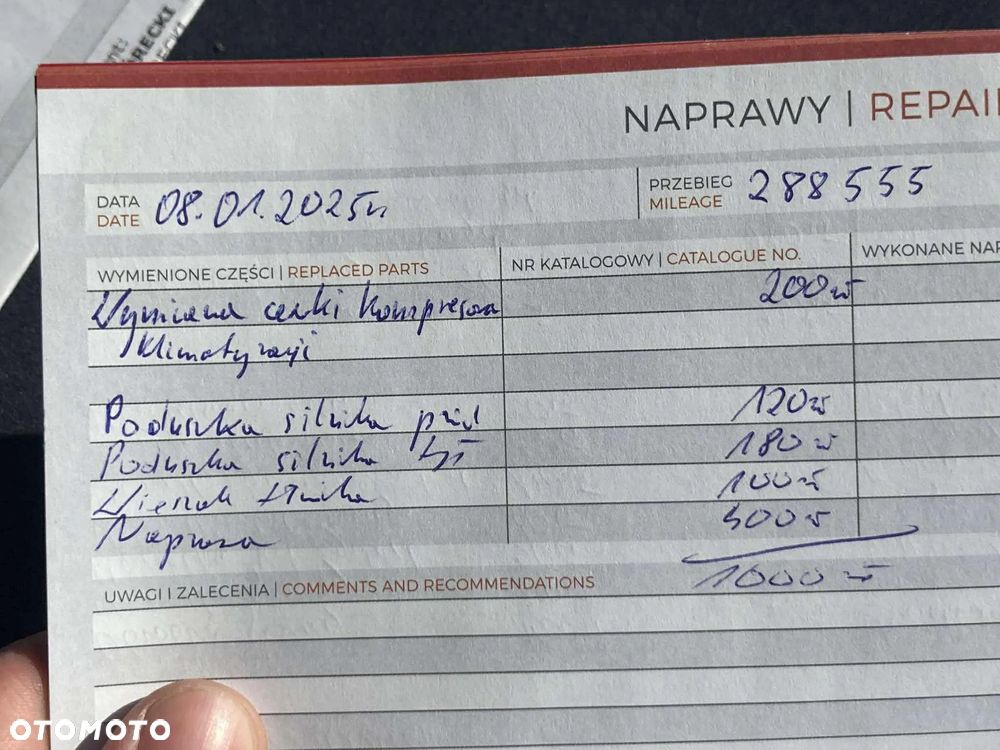 RECKI
NAPRAWY | REPAI
DATA 08.01.2025r PRZEBIEG 288555
DATE MILEAGE
WYMIENIONE CZĘŚCI | REPLACED PARTS NR KATALOGOWY | CATALOGUE NO. WYKONANE NAP
Wymiana cewki kompresora 200zł
klimatyzacji
Poduszka silnika przód 120zł
Poduszka silnika tył 180zł
Wieszak tłumika 100zł
Naprawa 400zł
1000zł
UWAGI I ZALECENIA | COMMENTS AND RECOMMENDATIONS
OTOMOTO